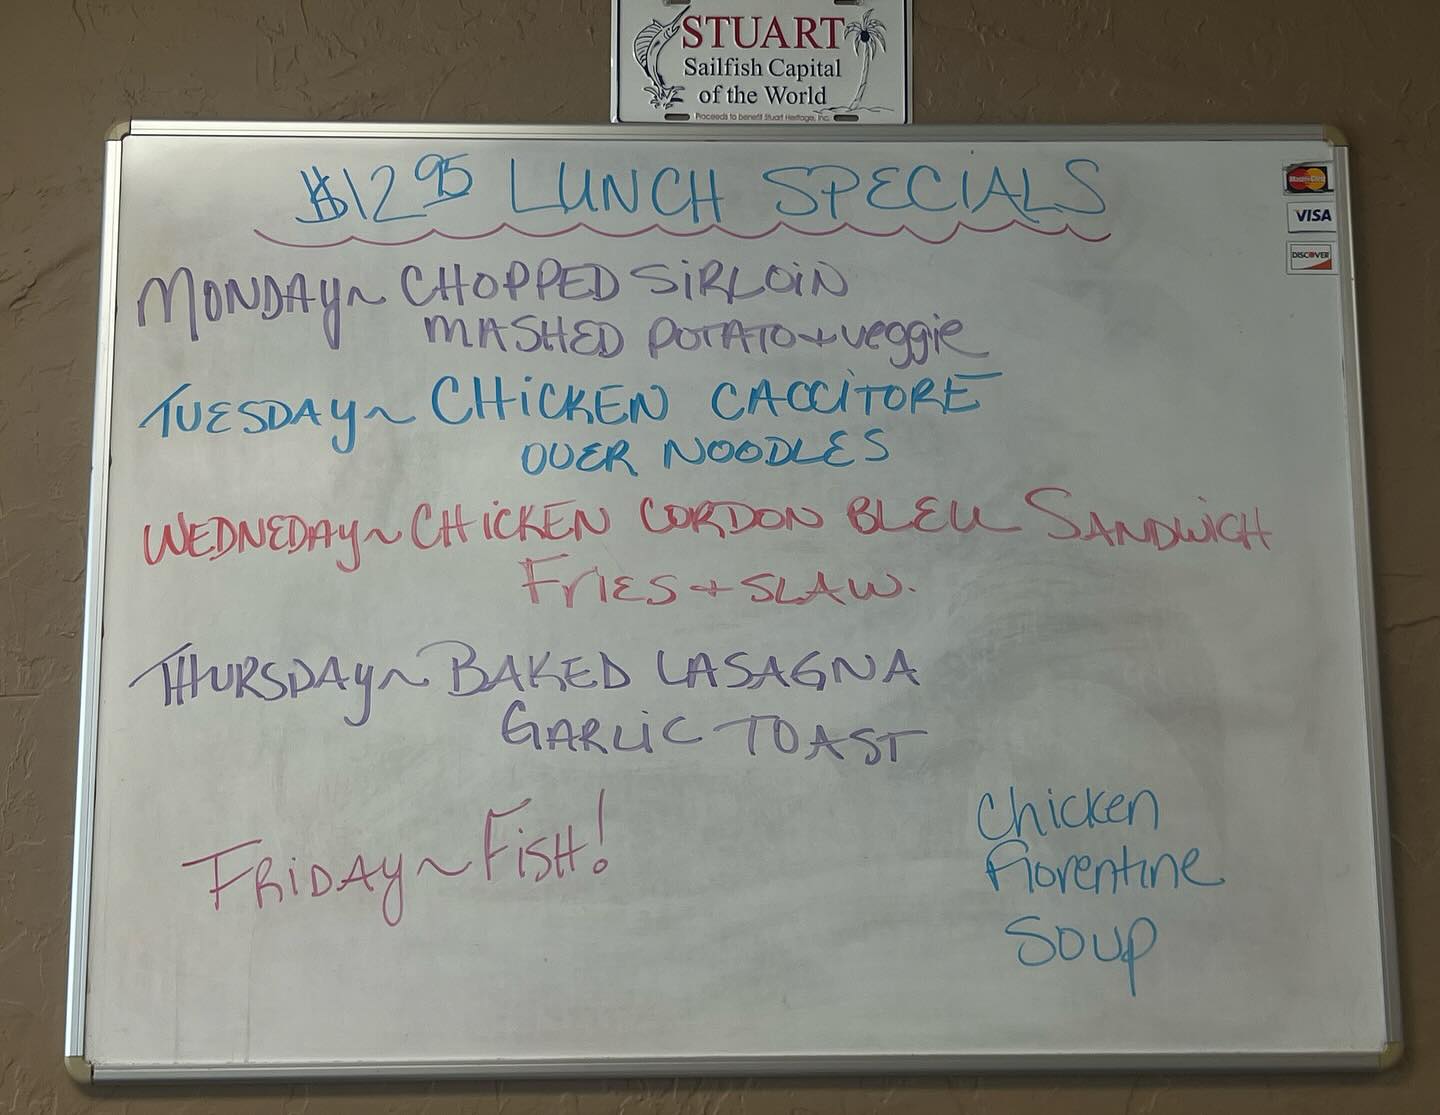 STUART
Sailfish Capital
of the World
Proceeds to benefit Stuart Heritage, Inc.
$12.95 LUNCH SPECIALS
MasterCard
VISA
DISCOVER
MONDAY~ CHOPPED SIRLOIN
MASHED POTATO + veggie
TUESDAY~ CHICKEN CACCITORE
OVER NOODLES
WEDNEDAY~ CHICKEN CORDON BLEU SANDWICH
FRIES + SLAW.
THURSDAY~ BAKED LASAGNA
GARLIC TOAST
FRIDAY~ FISH!
Chicken
Florentine
Soup